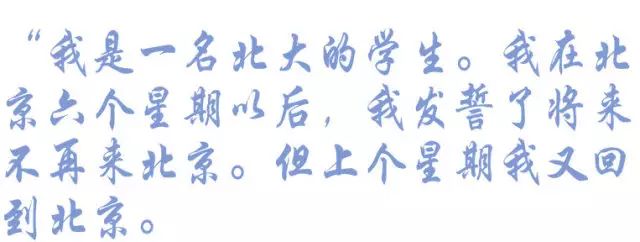 “我是一名北大的学生。我在北
京六个星期以后，我发誓了将来
不再来北京。但上个星期我又回
到北京。